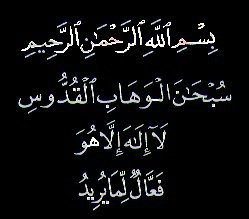 بِسْمِ ٱللَّهِ ٱلرَّحْمَٰنِ ٱلرَّحِيمِ
سُبْحَٰنَ ٱلْوَهَابِ ٱلْقُدُّوسِ
لَآ إِلَٰهَ إِلَّا هُوَ
فَعَّالٌ لِّمَا يُرِيدُ